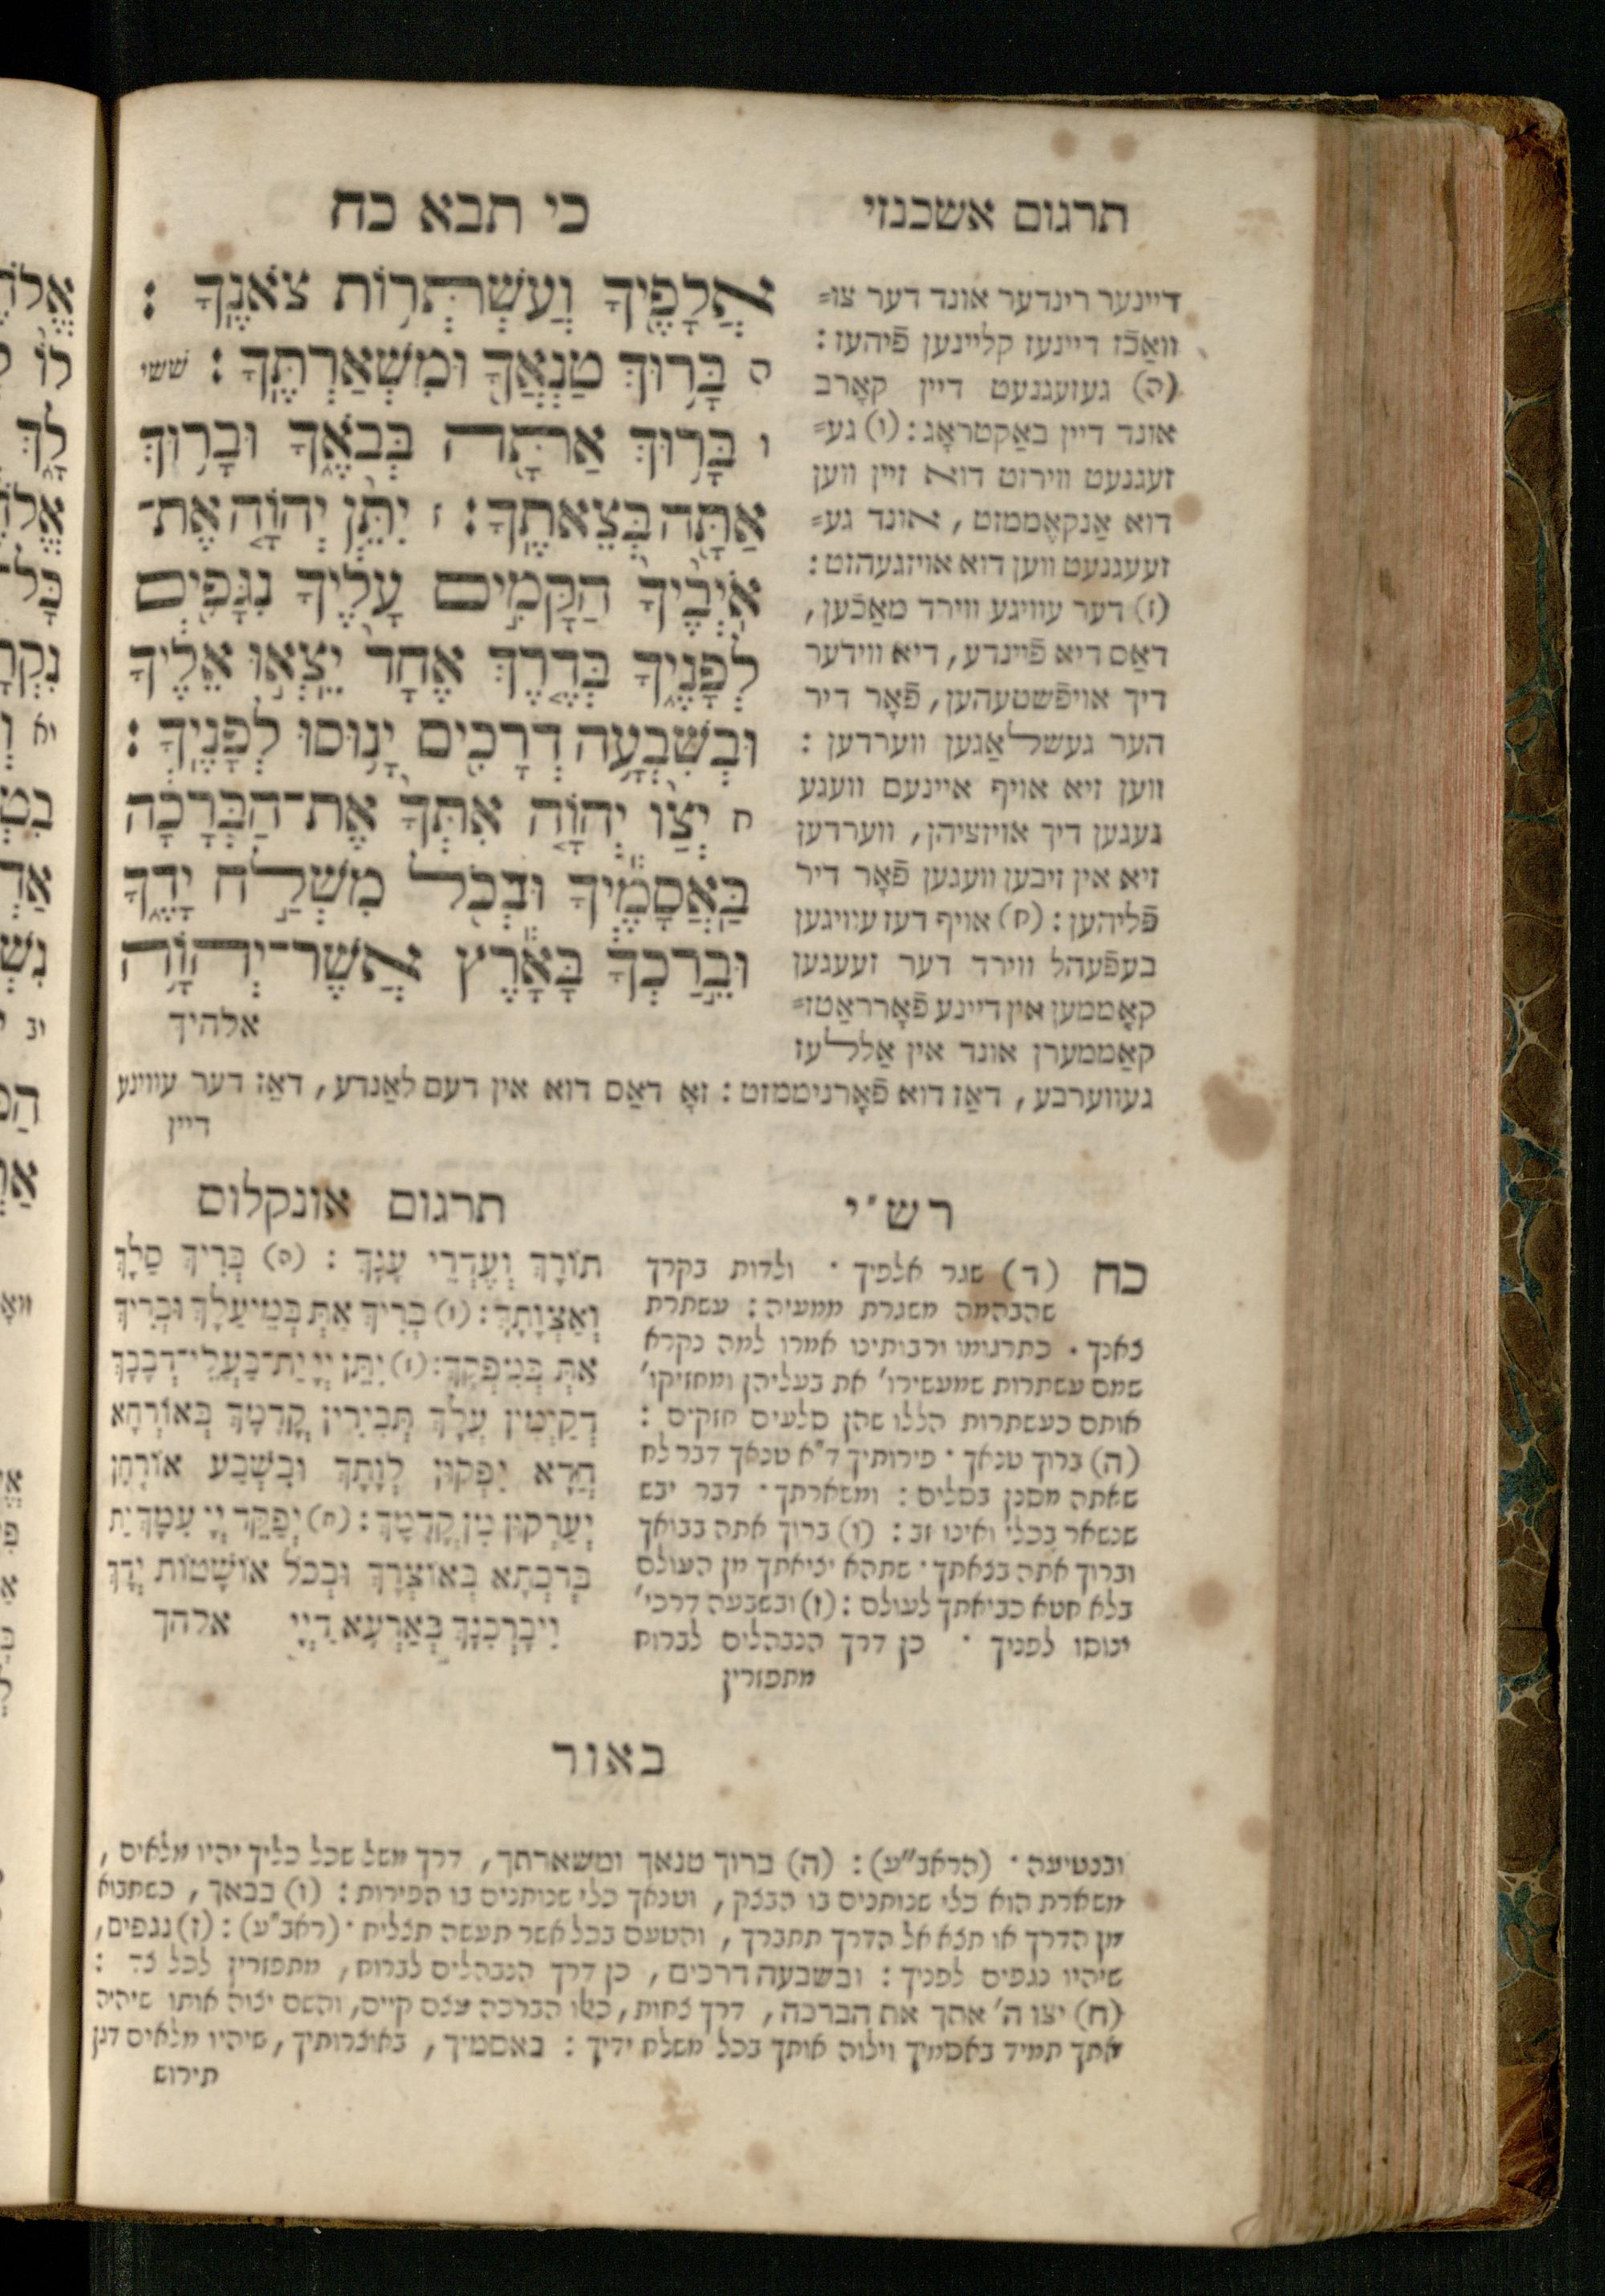 תרגום אשכנזי
כי תבא כח
דיינער רינדער אונד דער צו=
וואַכֿז דיינעז קליינען פֿיהעז :
(ה) געזעגנעט דיין קאָרב
אונד דיין באַקטראָג : (ו) גע=
זעגנעט ווירזט דוא זיין ווען
דוא אַנקאָממזט , אונד גע=
זעעגנעט ווען דוא אויזגעהזט :
(ז) דער עוויגע ווירד מאַכֿען ,
דאַס דיא פֿיינדע , דיא ווידער
דיך אויפֿשטעהען , פֿאָר דיר
הער געשלאַגען ווערדען :
ווען זיא אויף איינעם וועגע
געגען דיך אויזציהן , ווערדען
זיא אין זיבען וועגען פֿאָר דיר
פֿליהען : (ח) אויף דעז עוויגען
בעפֿעהל ווירד דער זעעגען
קאָממען אין דיינע פֿאָרראַטז=
קאַממערן אונד אין אַללעז
געווערבע , דאַז דוא פֿאָרניממזט : זאָ דאַס דוא אין דעם לאַנדע , דאַז דער עוויגע
דיין
אֲלָפֶ֖יךָ וְעַשְׁתְּר֥וֹת צֹאנֶֽךָ :
ה בָּר֥וּךְ טַנְאֲךָ֖ וּמִשְׁאַרְתֶּֽךָ : ששי
ו בָּר֥וּךְ אַתָּ֖ה בְּבֹאֶ֑ךָ וּבָר֥וּךְ
אַתָּ֖ה בְּצֵאתֶֽךָ : ז יִתֵּ֨ן יְהוָ֤ה אֶת־
אֹֽיְבֶ֙יךָ֙ הַקָּמִ֣ים עָלֶ֔יךָ נִגָּפִ֖ים
לְפָנֶ֑יךָ בְּדֶ֤רֶךְ אֶחָד֙ יֵֽצְא֣וּ אֵלֶ֔יךָ
וּבְשִׁבְעָ֥ה דְרָכִ֖ים יָנ֥וּסוּ לְפָנֶֽיךָ :
ח יְצַ֨ו יְהוָ֤ה אִתְּךָ֙ אֶת־הַבְּרָכָ֔ה
בַּאֲסָמֶ֕יךָ וּבְכֹ֖ל מִשְׁלַ֣ח יָדֶ֑ךָ
וּבֵ֣רַכְךָ֔ בָּאָ֕רֶץ אֲשֶׁר־יְהוָ֥ה
אלהיך
רש״י
כח (ד) שגר אלפיך · ולדות בקרך
שהבהמה משגרת ממעיה : עשתרת
צאנך · כתרגומו ורבותינו אמרו למה נקרא
שמם עשתרות שמעשירו׳ את בעליהן ומחזיקו׳
אותם כעשתרות הללו שהן סלעים חזקים :
(ה) ברוך טנאך · פירותיך ד״א טנאך דבר לח
שאתה מסנן בסלים : ומשארתך · דבר יבש
שנשאר בכלי ואינו זב : (ו) ברוך אתה בבואך
וברוך אתה בצאתך · שתהא יציאתך מן העולם
בלא חטא כביאתך לעולם : (ז) ובשבעה דרכי׳
ינוסו לפניך · כן דרך הנבהלים לברוח
מתפזרין
תרגום אונקלוס
תוֹרָךְ וְעֶדְרֵי עָנָךְ : (ה) בְּרִיךְ סַלָּךְ
וְאַצְוָתָךְ : (ו) בְּרִיךְ אַתְּ בְּמֵיעֲלָךְ וּבְרִיךְ
אַתְּ בְּמִיפְּקָךְ : (ז) יִתֵּן יְיָ יַת־בַּעֲלֵי־דְבָבָךְ
דְּקַיְמִין עֲלָךְ תְּבִירִין קֳדָמָךְ בְּאוֹרְחָא
חֲדָא יִפְּקוּן לְוָתָךְ וּבְשַׁבְעָ אוֹרְחָן
יְעַרְקוּן מִן קֳדָמָךְ : (ח) יְפַקֵּד יְיָ עִמָּךְ יַת
בִּרְכְתָא בְּאוֹצְרָךְ וּבְכֹל אוֹשָׁטוּת יְדָךְ
וִיבָרְכִנָּךְ בְּאַרְעָא דַּיְיָ אלהך
באור
ובנטיעה · (הראב״ע) : (ה) ברוך טנאך ומשארתך , דרך משל שכל כליך יהיו מלאים ,
משארת הוא כלי שנותנים בו הבצק , וטנאך כלי שנותנים בו הפירות : (ו) בבאך , כשתבוא
מן הדרך או תצא אל הדרך תתברך , והטעם בכל אשר תעשה תצליח · (ראב״ע) : (ז) נגפים ,
שיהיו נגפים לפניך : ובשבעה דרכים , כן דרך הנבהלים לברוח , מתפזרין לכל צד :
(ח) יצו ה׳ אתך את הברכה , דרך צחות , כאלו הברכה עצם קיים , והשם יצוה אותו שיהיה
אתך תמיד באסמיך וילוה אותך בכל משלח ידיך : באסמיך , באוצרותיך , שיהיו מלאים דגן
תירוש